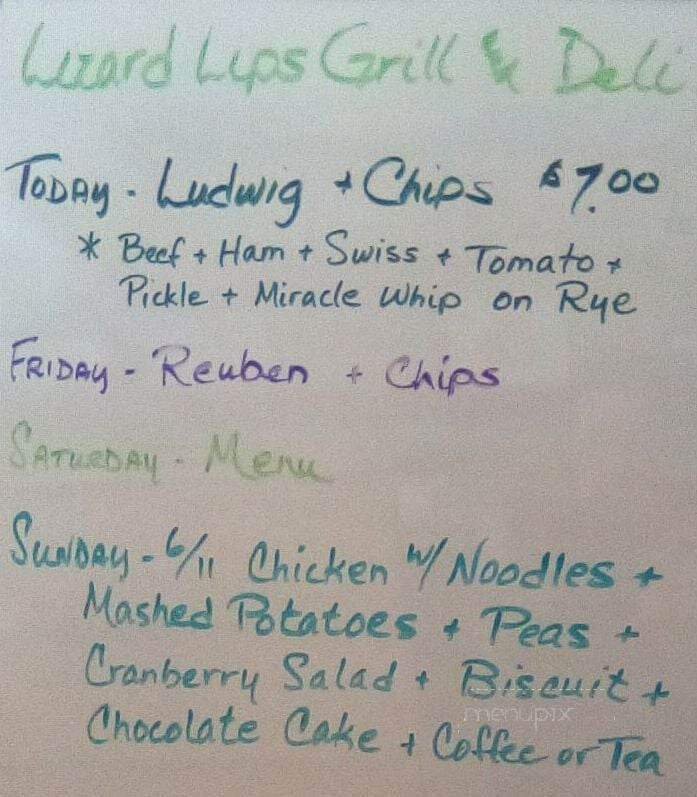 Lizard Lips Grill & Deli
Today - Ludwig + Chips $7.00
* Beef + Ham + Swiss + Tomato +
Pickle + Miracle Whip on Rye
Friday - Reuben + Chips
Saturday - Menu
Sunday - 6/11 Chicken w/ Noodles +
Mashed Potatoes + Peas +
Cranberry Salad + Biscuit +
menupix
Chocolate Cake + Coffee or Tea